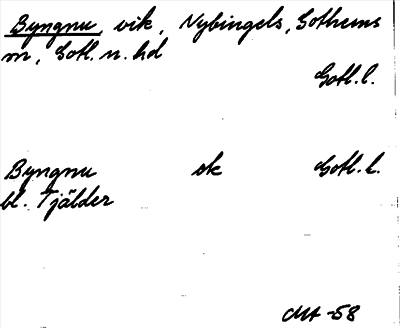 Byngnu, vik, Nybingels, Gothems
sn, Gotl. n. hd
Gotl. l.
Byngnu ek Gotl. l.
bl. Tjälder
-58